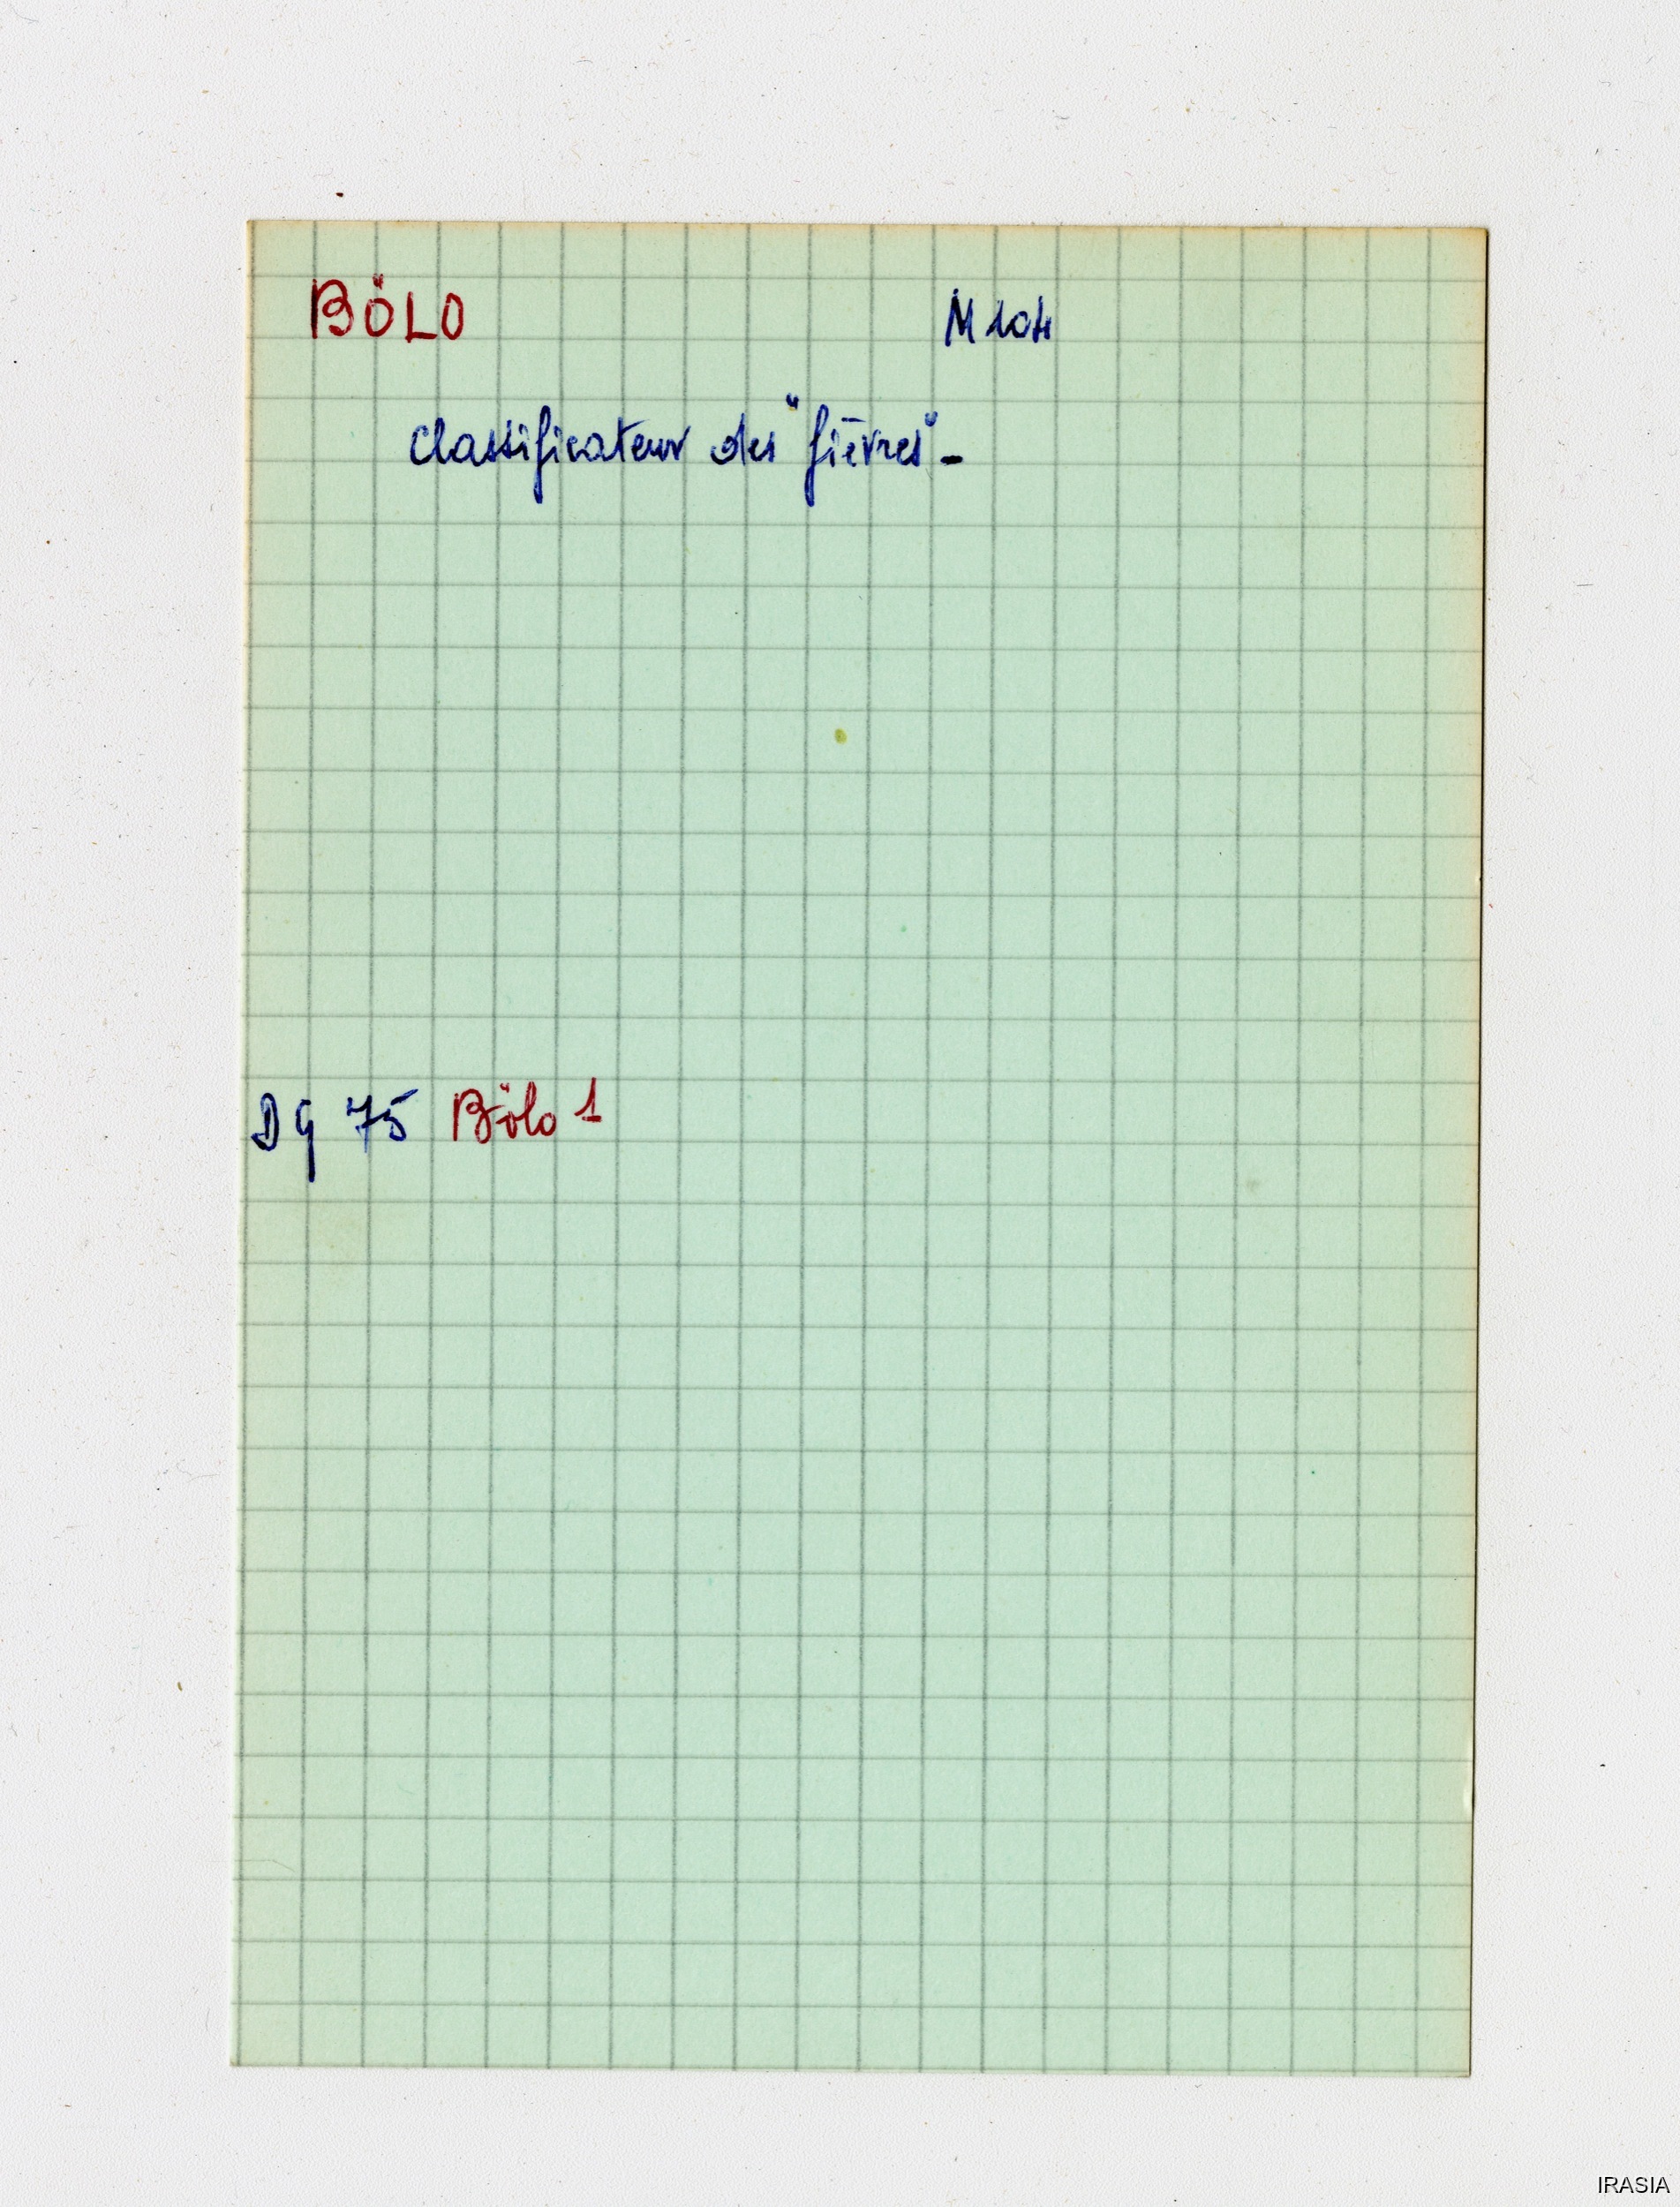 BÖLO M 104
Classificateur des "fièvres" -
DG 75 Bölo 1
IRASIA